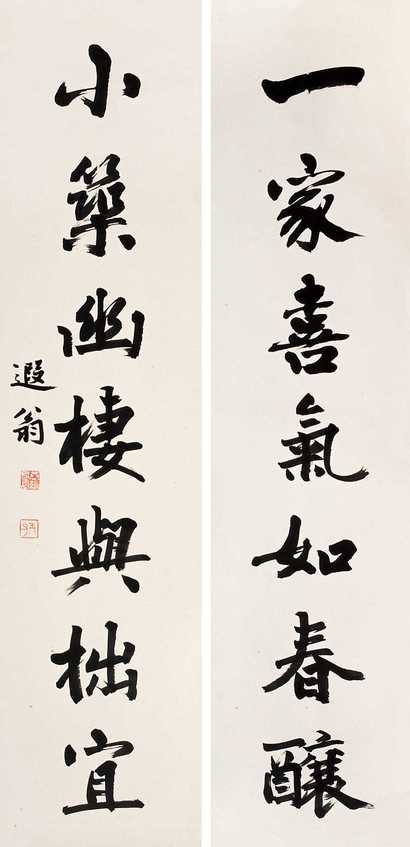 一家喜氣如春釀
小築幽棲與拙宜
遐翁